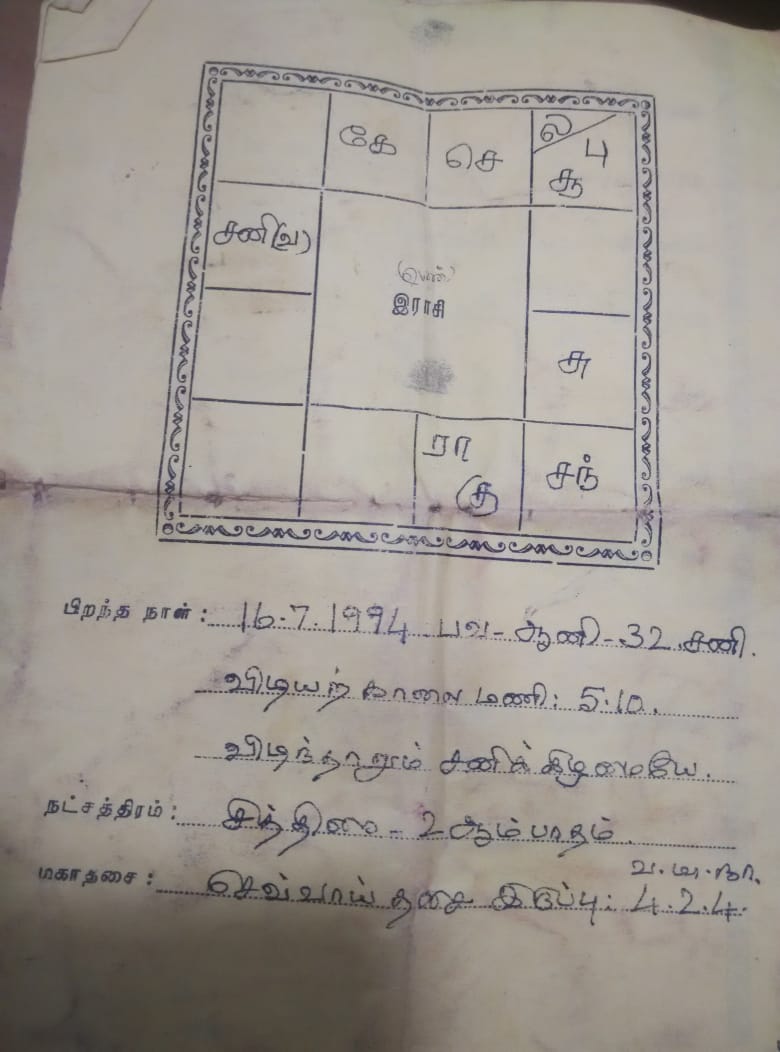 கே செ ல பு
சூ
சனி(வ)
(பெண்)
இராசி
சு
ரா
கு சந்
பிறந்த நாள் : 16.7.1994 பவ - ஆனி - 32 சனி.
விடியற்காலை மணி: 5.10.
விடிந்தாலும் சனிக்கிழமையே.
நட்சத்திரம் : சித்திரை - 2 ஆம் பாதம்.
வ. மா. நா.
மகாதசை : செவ்வாய் தசை இருப்பு: 4.2.4.